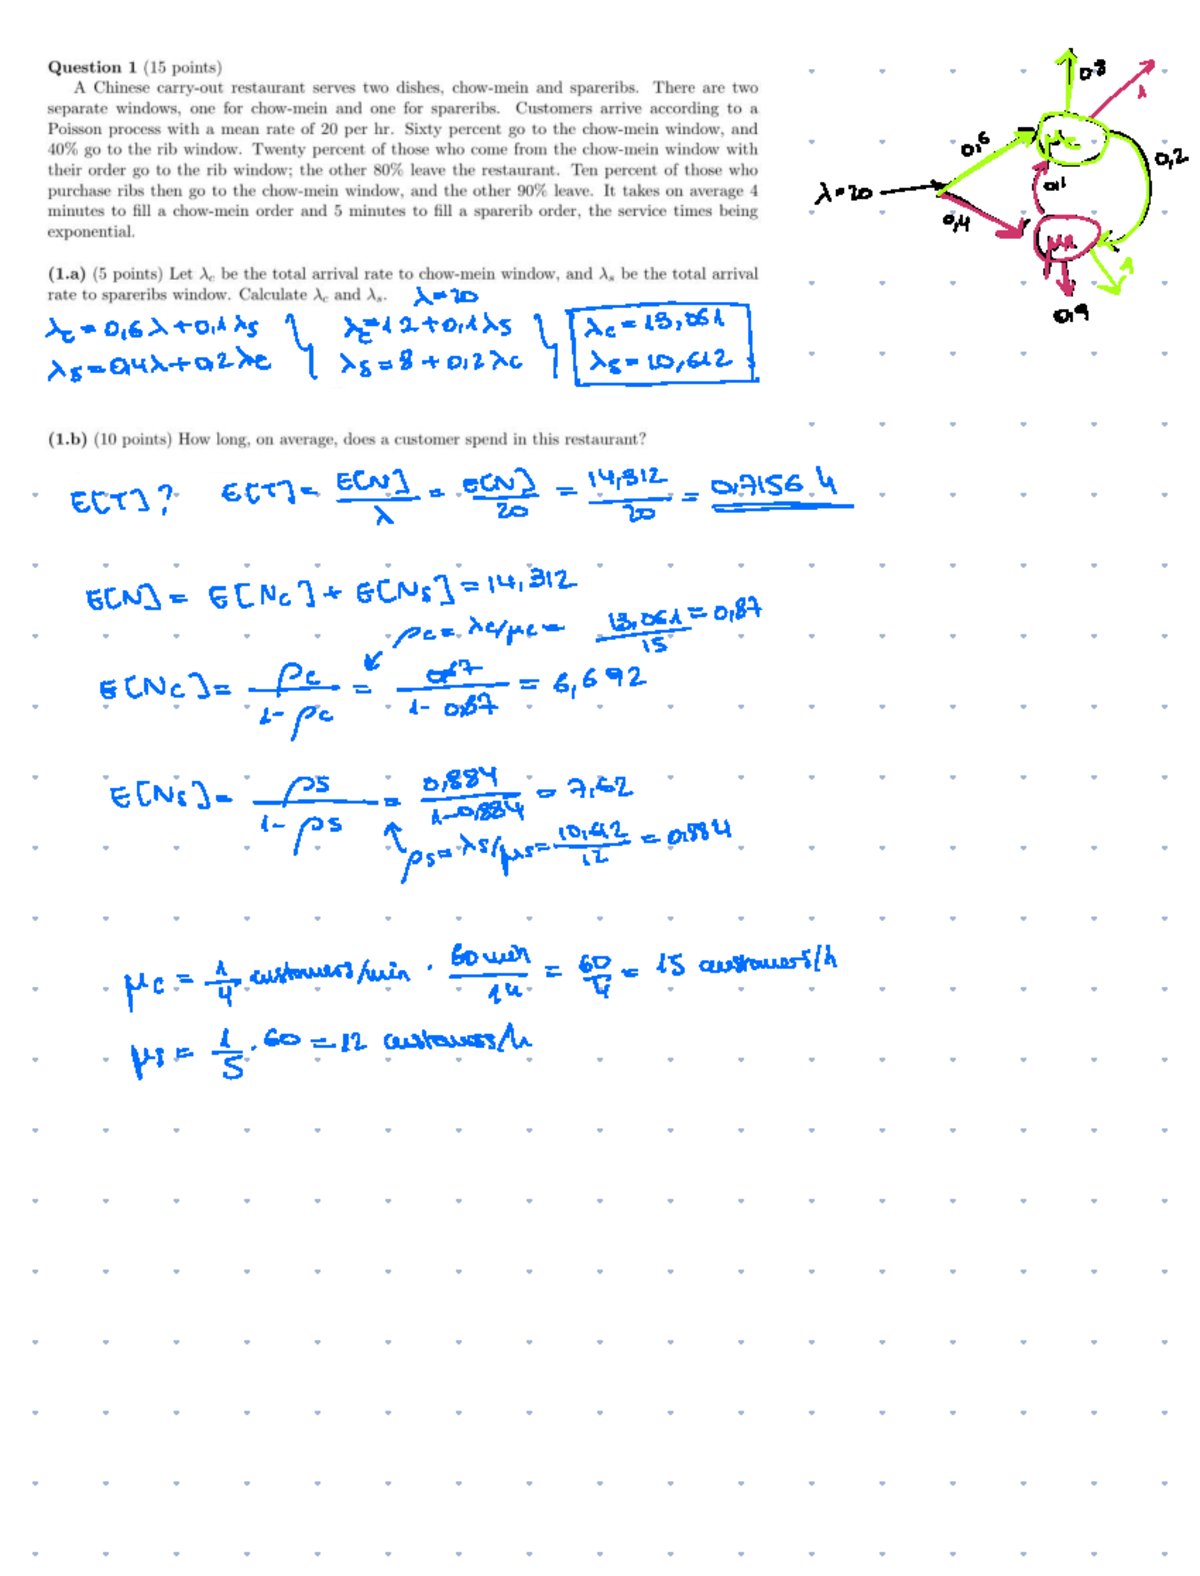 Question 1 (15 points)
A Chinese carry-out restaurant serves two dishes, chow-mein and spareribs. There are two
separate windows, one for chow-mein and one for spareribs. Customers arrive according to a
Poisson process with a mean rate of 20 per hr. Sixty percent go to the chow-mein window, and
40% go to the rib window. Twenty percent of those who come from the chow-mein window with
their order go to the rib window; the other 80% leave the restaurant. Ten percent of those who
purchase ribs then go to the chow-mein window, and the other 90% leave. It takes on average 4
minutes to fill a chow-mein order and 5 minutes to fill a sparerib order, the service times being
exponential.
0,8
λ
0,6
μc
0,2
λ=20
0,1
0,4
μs
λ
0,9
(1.a) (5 points) Let λc be the total arrival rate to chow-mein window, and λs be the total arrival
rate to spareribs window. Calculate λc and λs. λ=20
λc = 0,6λ+0,1λs } λc=12+0,1λs } λc = 13,061
λs = 0,4λ+0,2λc } λs = 8+0,2λc } λs = 10,612
(1.b) (10 points) How long, on average, does a customer spend in this restaurant?
E[T]? E[T] = E[N]/λ = E[N]/20 = 14,312/20 = 0,7156 h
E[N] = E[Nc] + E[Ns] = 14,312
ρc = λc/μc = 13,061/15 = 0,87
E[Nc] = ρc/1-ρc = 0,87/1-0,87 = 6,692
E[Ns] = ρs/1-ρs = 0,884/1-0,884 = 7,62
ρs = λs/μs = 10,612/12 = 0,884
μc = 1/4 customers/min · 60 min/1h = 60/4 = 15 customers/h
μs = 1/5 · 60 = 12 customers/h